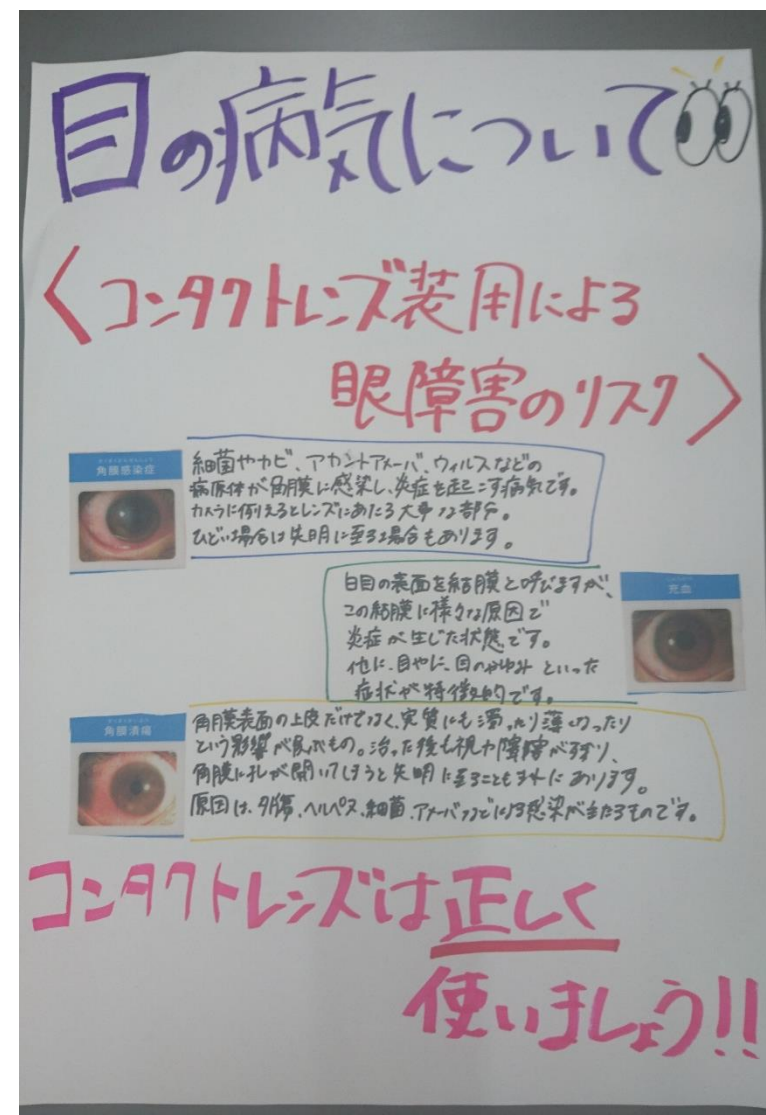 目の病気について
〈コンタクトレンズ装用による
眼障害のリスク〉
角膜感染症
細菌やカビ、アカントアメーバ、ウィルスなどの
病原体が角膜に感染し、炎症を起こす病気です。
カメラに例えるとレンズにあたる大事な部分。
ひどい場合は失明に至る場合もあります。
充血
白目の表面を結膜と呼びますが、
この結膜に様々な原因で
炎症が生じた状態です。
他に、目やに、目のかゆみといった
症状が特徴的です。
角膜潰瘍
角膜表面の上皮だけでなく、実質にも濁ったり薄くなったり
という影響が及ぶもの。治った後も視力障害が残り、
角膜に孔が開いてしまうと失明に至ることもまれにあります。
原因は、外傷、ヘルペス、細菌、アメーバなどによる感染が主たるものです。
コンタクトレンズは正しく
使いましょう!!